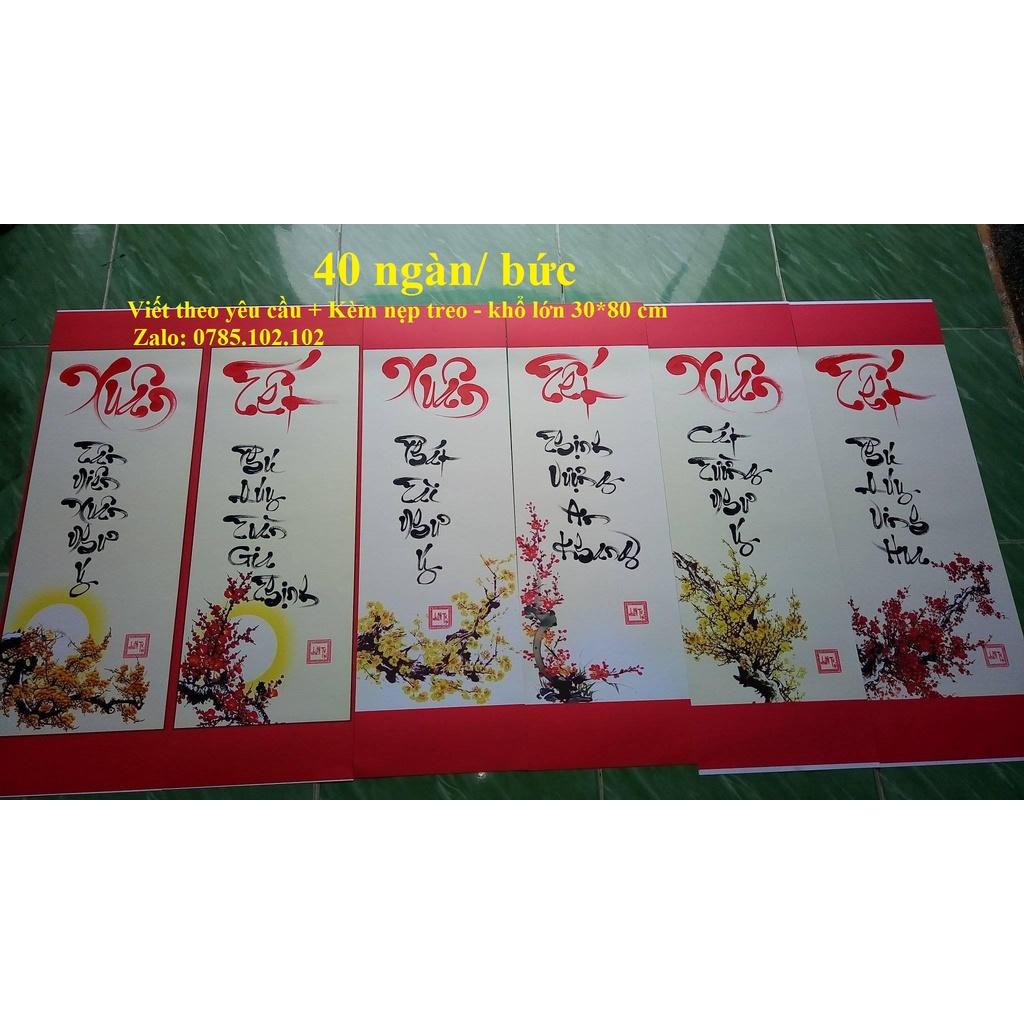 40 ngàn/ bức
Viết theo yêu cầu + Kèm nẹp treo - khổ lớn 30*80 cm
Zalo: 0785.102.102
Xuân
Tân
Niên
Xuân
Như
Ý
Tết
Phú
Quý
Toàn
Gia
Thịnh
Xuân
Phát
Tài
Như
Ý
Tết
Thịnh
Vượng
An
Khang
Xuân
Cát
Tường
Như
Ý
Tết
Phú
Quý
Vinh
Hoa